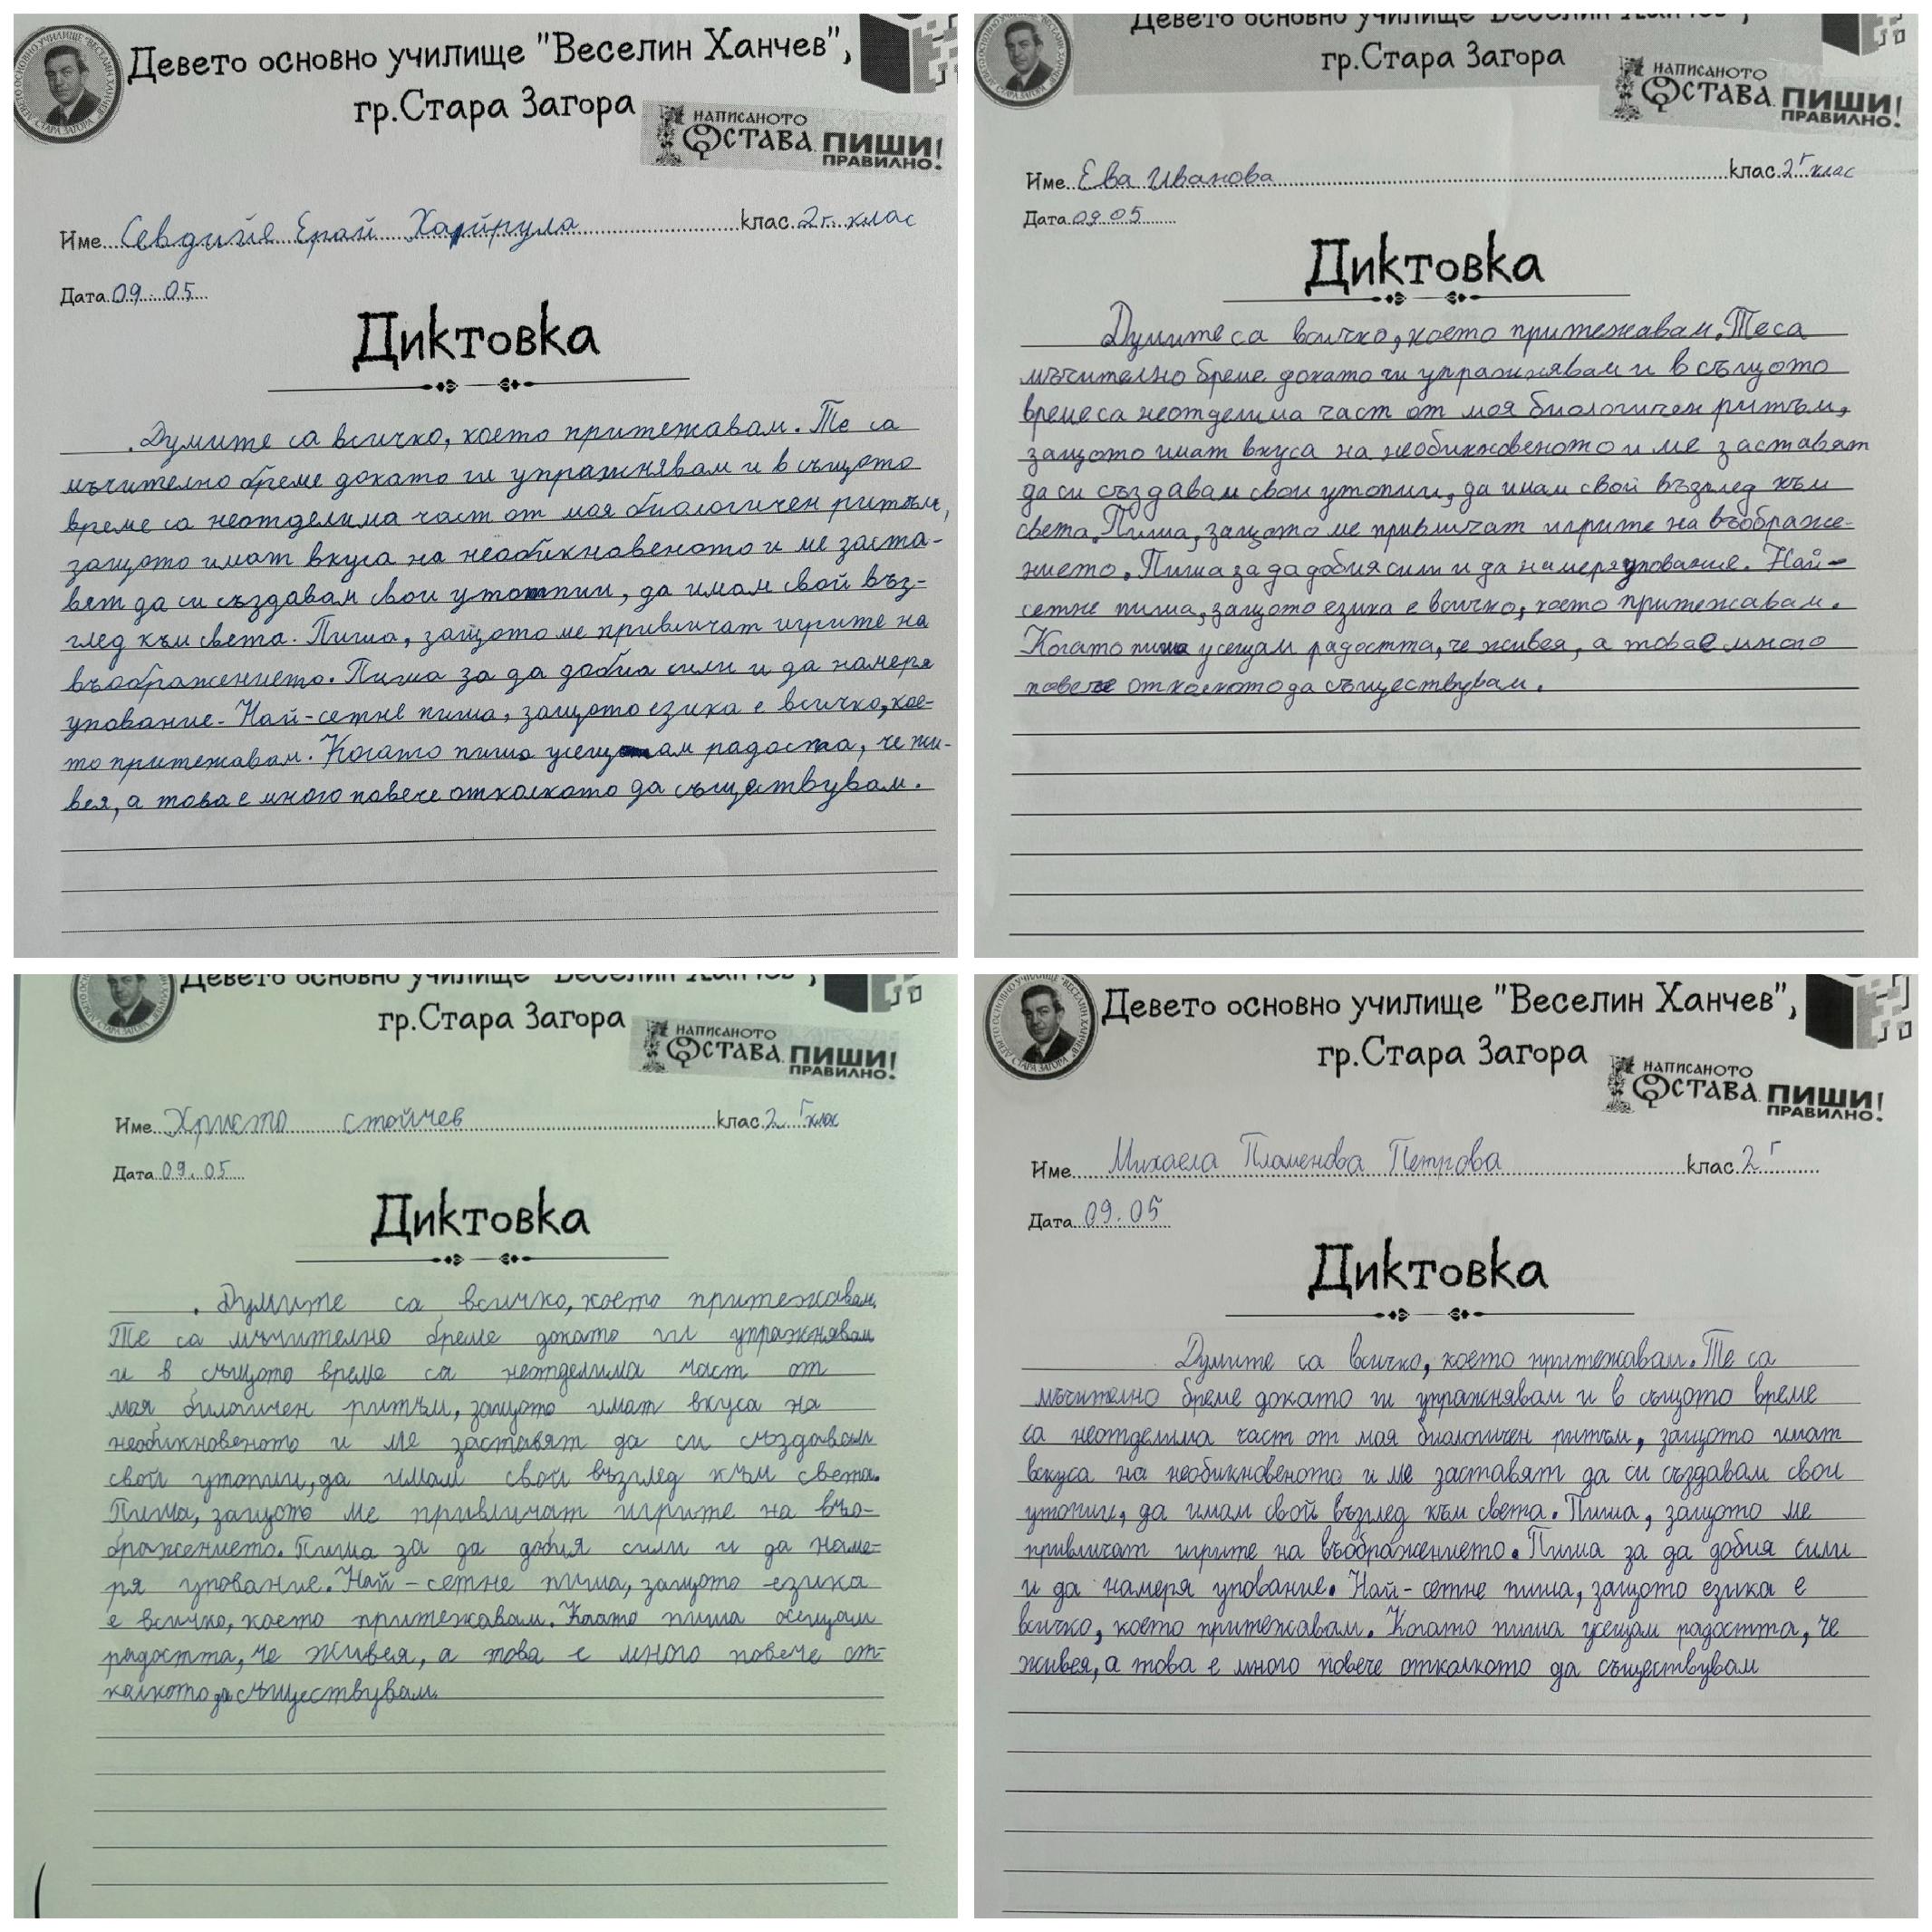 Девето основно училище "Веселин Ханчев",
гр.Стара Загора
НАПИСАНОТО
ОСТАВА. ПИШИ
ПРАВИЛНО!
Име Севдигйя Ерай Хайрула клас 2г. клас
Дата 09.05
Диктовка
Думите са всичко, което притежавам. Те са
мъчително бреме докато ги упражнявам и в същото
време са неотделима част от моя биологичен ритъм,
защото имат вкуса на необикновеното и ме заста-
вят да си създавам свои утопии, да имам свой въз-
глед към света. Пиша, защото ме привличат игрите на
въображението. Пиша за да добия сили и да намеря
упование. Най-сетне пиша, защото езика е всичко, кое-
то притежавам. Когато пиша усещам радостта, че жи-
вея, а това е много повече отколкото да съществувам.
Девето основно училище "Веселин Ханчев",
гр.Стара Загора
НАПИСАНОТО
ОСТАВА. ПИШИ
ПРАВИЛНО!
Име Ева Иванова клас 2г клас
Дата 09 05
Диктовка
Думите са всичко, което притежавам. Те са
мъчително бреме докато ги упражнявам и в същото
време са неотделима част от моя биологичен ритъм,
защото имат вкуса на необикновеното и ме заставят
да си създавам свои утопии, да имам свой възглед към
света. Пиша, защото ме привличат игрите на въображе-
нието. Пиша за да добия сили и да намеря упование. Най-
сетне пиша, защото езика е всичко, което притежавам.
Когато пиша усещам радостта, че живея, а това е много
повече отколкото да съществувам.
Девето основно училище "Веселин Ханчев",
гр.Стара Загора
НАПИСАНОТО
ОСТАВА. ПИШИ
ПРАВИЛНО!
Име Христо стойчев клас 2 г клас
Дата 09.05
Диктовка
Думите са всичко, което притежавам.
Те са мъчително бреме докато ги упражнявам
и в същото време са неотделима част от
моя билогичен ритъм, защото имат вкуса на
необикновеното и ме заставят да си създавам
свой утопии, да имам свой възглед към света.
Пиша, защото ме привличат игрите на въо-
бражението. Пиша за да добия сили и да наме-
ря упование. Най-сетне пиша, защото езика
е всичко, което притежавам. Когато пиша осещам
радостта, че живея, а това е много повече от-
колкото да съществувам.
Девето основно училище "Веселин Ханчев",
гр.Стара Загора
НАПИСАНОТО
ОСТАВА. ПИШИ
ПРАВИЛНО!
Име Михаела Пламенова Петрова клас 2 г
Дата 09.05
Диктовка
Думите са всичко, което притежавам. Те са
мъчително бреме докато ги упражнявам и в същото време
са неотделима част от моя биологичен ритъм, защото имат
вкуса на необикновеното и ме заставят да си създавам свои
утопии, да имам свой възглед към света. Пиша, защото ме
привличат игрите на въображението. Пиша за да добия сили
и да намеря упование. Най-сетне пиша, защото езика е
всичко, което притежавам. Когато пиша усещам радостта, че
живея, а това е много повече отколкото да съществувам